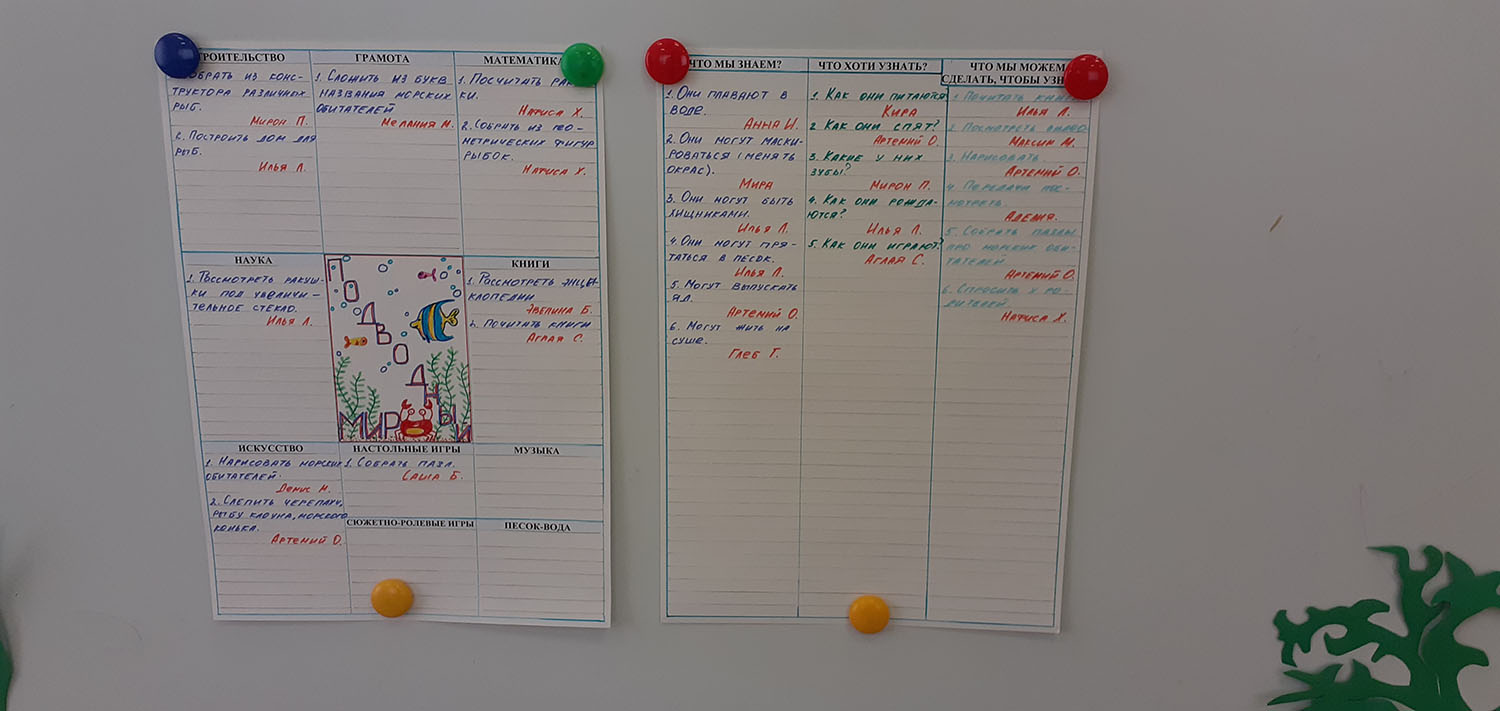 СТРОИТЕЛЬСТВО
1. Собрать из конс-
труктора различных
рыб.
Мирон П.
2. Построить дом для
рыб.
Илья Л.
ГРАМОТА
1. Сложить из букв
названия морских
обитателей
Мелания М.
МАТЕМАТИКА
1. Посчитать
ки.
Нафиса Х.
2. Собрать из гео-
метрических фигур
рыбок.
Нафиса Х.
НАУКА
1. Рассмотреть ракуш-
ки под увеличи-
тельное стекло.
Илья Л.
ПОДВОДНЫЙ
МИР
КНИГИ
1. Рассмотреть энци-
клопедии
Эвелина Б.
2. Почитать книги
Аглая С.
ИСКУССТВО
1. Нарисовать морских
обитателей.
Денис М.
2. Слепить черепаху,
рыбу клоуна, морского
конька.
Артемий О.
НАСТОЛЬНЫЕ ИГРЫ
1. Собрать пазл.
Саша Б.
МУЗЫКА
СЮЖЕТНО-РОЛЕВЫЕ ИГРЫ
ПЕСОК-ВОДА
ЧТО МЫ ЗНАЕМ?
1. Они плавают в
воде.
Анна И.
2. Они могут маски-
роваться (менять
окрас).
Мира
3. Они могут быть
хищниками.
Илья Л.
4. Они могут пря-
таться в песок.
Илья Л.
5. Могут выпускать
яд.
Артемий О.
6. Могут жить на
суше.
Глеб Г.
ЧТО ХОТИ УЗНАТЬ?
1. Как они питаются
Кира
2 Как они спят?
Артемий О.
3. Какие у них
зубы?
Мирон П.
4. Как они рожда-
ются?
Илья Л.
5. Как они играют?
Аглая С.
ЧТО МЫ МОЖЕМ
СДЕЛАТЬ, ЧТОБЫ УЗНАТЬ
1. Почитать книги
Илья Л.
2. Посмотреть видео.
Максим М.
3. Нарисовать
Артемий О.
4. Передачи пос-
мотреть.
Аделия.
5. Собрать пазлы
про морских оби-
тателей.
Артемий О.
6. Спросить у ро-
дителей.
Нафиса Х.